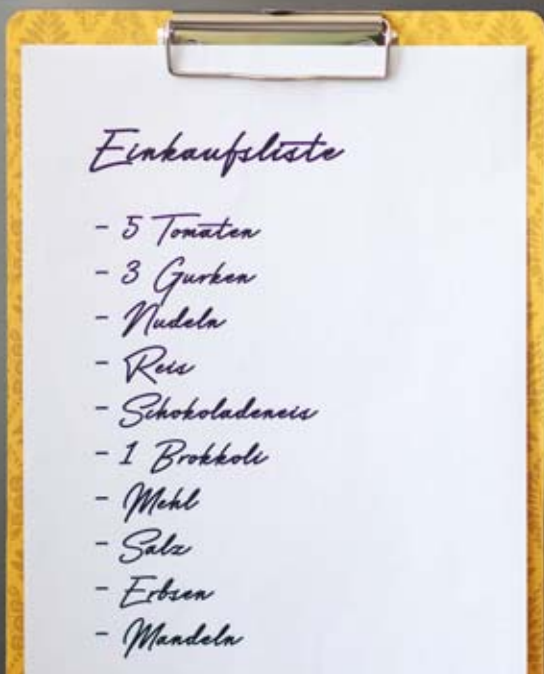 Einkaufsliste
- 5 Tomaten
- 3 Gurken
- Nudeln
- Reis
- Schokoladeneis
- 1 Brokkoli
- Mehl
- Salz
- Erbsen
- Mandeln